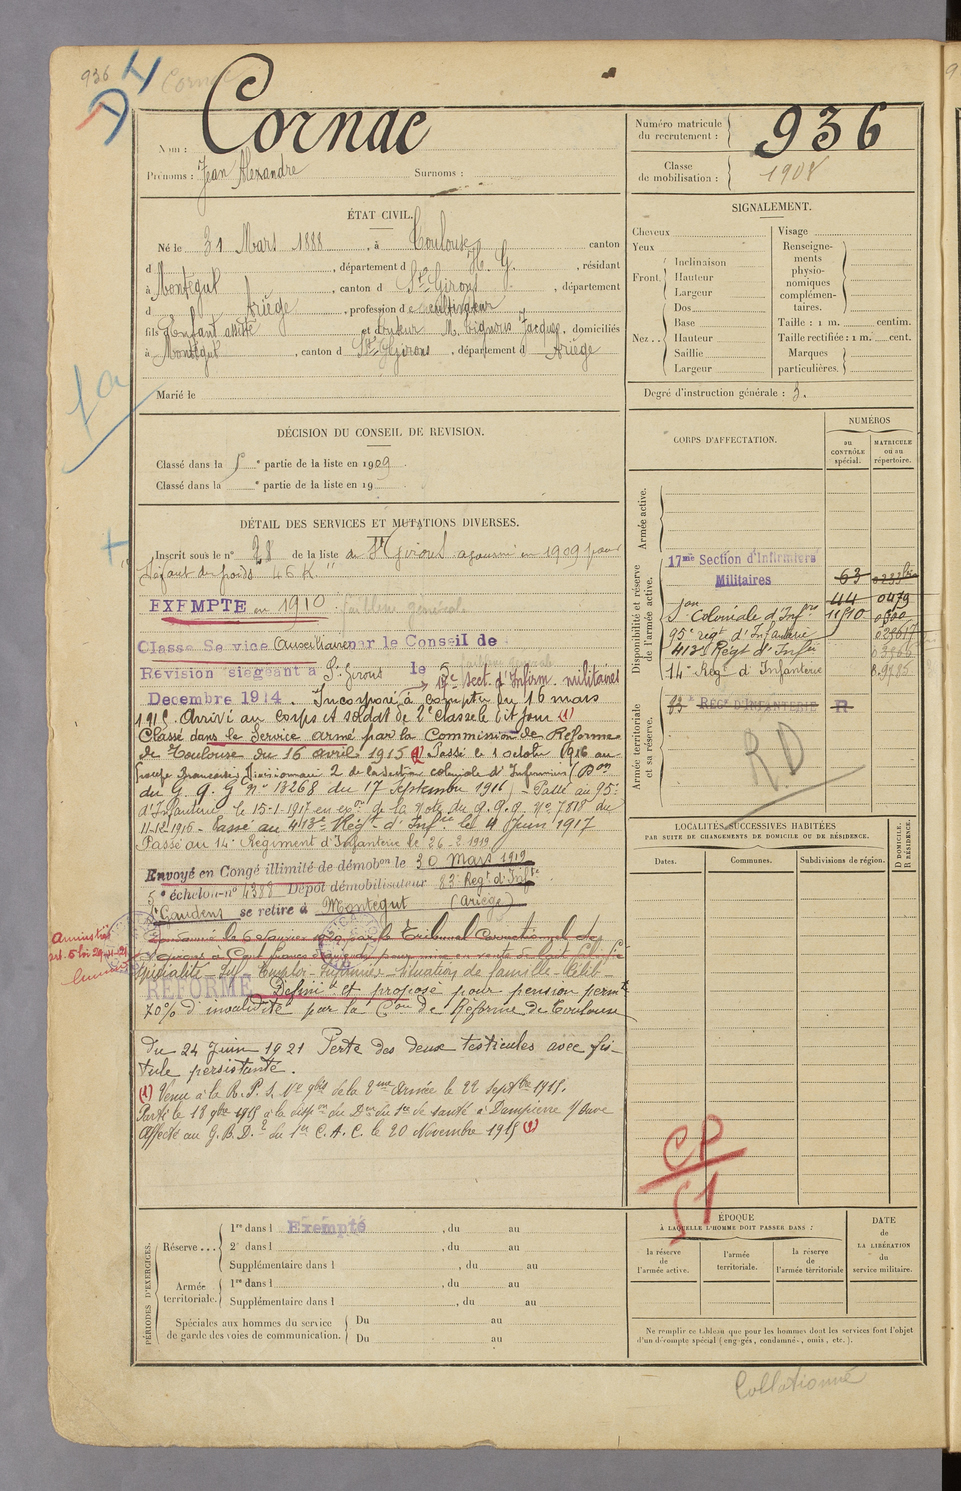 936
Cornac
Nom :
Cornac
Prénoms : Jean Alexandre Surnoms :
Numéro matricule du recrutement : 936
Classe de mobilisation : 1908
ÉTAT CIVIL.
Né le 31 Mars 1888, à Toulouse canton
d , département d H. G. , résidant
à Montégut , canton d St Girons , département
d Ariège , profession de cultivateur
fils Enfant assisté et de tuteur M. Jacques, domiciliés
à Montégut , canton d St Girons , département d Ariège
Marié le
SIGNALEMENT.
Cheveux
Yeux
Front. Inclinaison
Hauteur
Largeur
Nez .. Dos
Base
Hauteur
Saillie
Largeur
Visage
Renseigne-
ments
physio-
nomiques
complémen-
taires.
Taille : 1 m. centim.
Taille rectifiée : 1 m. cent.
Marques
particulières.
Degré d'instruction générale : 3.
DÉCISION DU CONSEIL DE REVISION.
Classé dans la 5e partie de la liste en 1909
Classé dans la e partie de la liste en 19
DÉTAIL DES SERVICES ET MUTATIONS DIVERSES.
Inscrit sous le n° 28 de la liste de St Girons ajourné en 1909 pour
"défaut de poids 46 K"
EXEMPTÉ en 1910 faiblesse générale
Classé Service Auxiliaire par le Conseil de
Revision siégeant à St Girons le 5
Decembre 1914. 17e Sect. d'Infirm. militaires
Incorporé à compter du 16 mars
1915. Arrivé au corps et soldat de 2e classe le dit jour (1)
Classé dans le Service armé par la Commission de Réforme
de Toulouse du 16 avril 1915 (1) Passé le 1 octobre 1916 au
Groupe Brancardiers Divisionnaire 2 de la section coloniale d'Infirmiers (Don
du G. Q. G n° 13268 du 17 Septembre 1916) - Passé au 95e
d'Infanterie le 15-1-1917 en exon de la note du G.Q.G. N° 7818 du
11-12-1916 - Passé au 413e Régt d'Infie le 4 Juin 1917
Passé au 14e Régiment d'Infanterie le 26-2-1919
Envoyé en Congé illimité de démobon le 30 Mars 1919
5e échelon n° 4388 Dépôt démobilisateur 83e Regt d'Infie
St Gaudens se retire à Montégut (Ariège)
Amnistié
art. 5 loi 29-4-21
Condamné le 6 Janvier 1920 par le tribunal Correctionnel de
à Cent francs d'amende pour mise en vente de lait falsifié
Spécialité - Emploi - Infirmier - Situation de famille - Célib -
RÉFORMÉ Définit et proposé pour pension permte
70% d'invalidité par la Con de Réforme de Toulouse
du 24 Juin 1921 Perte des deux testicules avec fis-
tule persistante.
(1) Venu à la R. P. S. de la 2me Armée le 22 Septbre 1915.
Parti le 18 9bre 1915 à la dispon du Dr du Sce de santé à Dampierre s/ Auve
Affecté au G.B.D. 2 du 1er C.A.C. le 20 Novembre 1915 (1)
CORPS D'AFFECTATION.
NUMÉROS
au CONTRÔLE spécial.
MATRICULE ou au répertoire.
Armée active.
Disponibilité et réserve de l'armée active.
17me Section d'Infirmiers
Militaires 63
Son Coloniale d'Infres 44 0479
11510
95e regt d'Infanterie
413e Régt d'Infie
14e Régt d'Infanterie
Armée territoriale et sa réserve.
83e REGt D'INFANTERIE R
RD
LOCALITÉS SUCCESSIVES HABITÉES
PAR SUITE DE CHANGEMENTS DE DOMICILE OU DE RÉSIDENCE.
Dates.
Communes.
Subdivisions de région.
D DOMICILE.
R RÉSIDENCE.
CP
51
PÉRIODES D'EXERCICES.
Réserve ... 1re dans l Exempté , du au
2e dans l , du au
Supplémentaire dans l , du au
Armée territoriale. 1re dans l , du au
Supplémentaire dans l , du au
Spéciales aux hommes du service
de garde des voies de communication.
Du au
Du au
ÉPOQUE
À LAQUELLE L'HOMME DOIT PASSER DANS :
la réserve de l'armée active.
l'armée territoriale.
la réserve de l'armée territoriale
DATE de LA LIBÉRATION du service militaire.
Ne remplir ce tableau que pour les hommes dont les services font l'objet
d'un décompte spécial (engagés, condamnés, omis, etc.).
Collationné